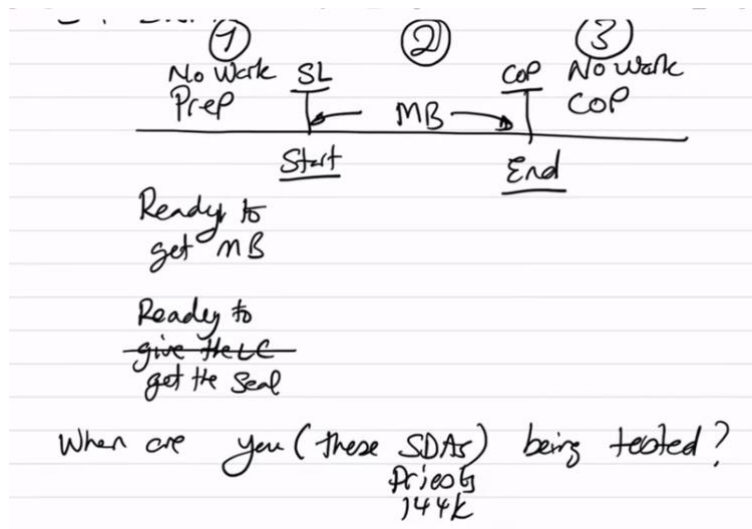 1 2 3
No Work SL CoP No Work
Prep MB CoP
Start End
Ready to
get MB
Ready to
give the LC
get the Seal
When are you (these SDAs) being tested?
Priests
144k